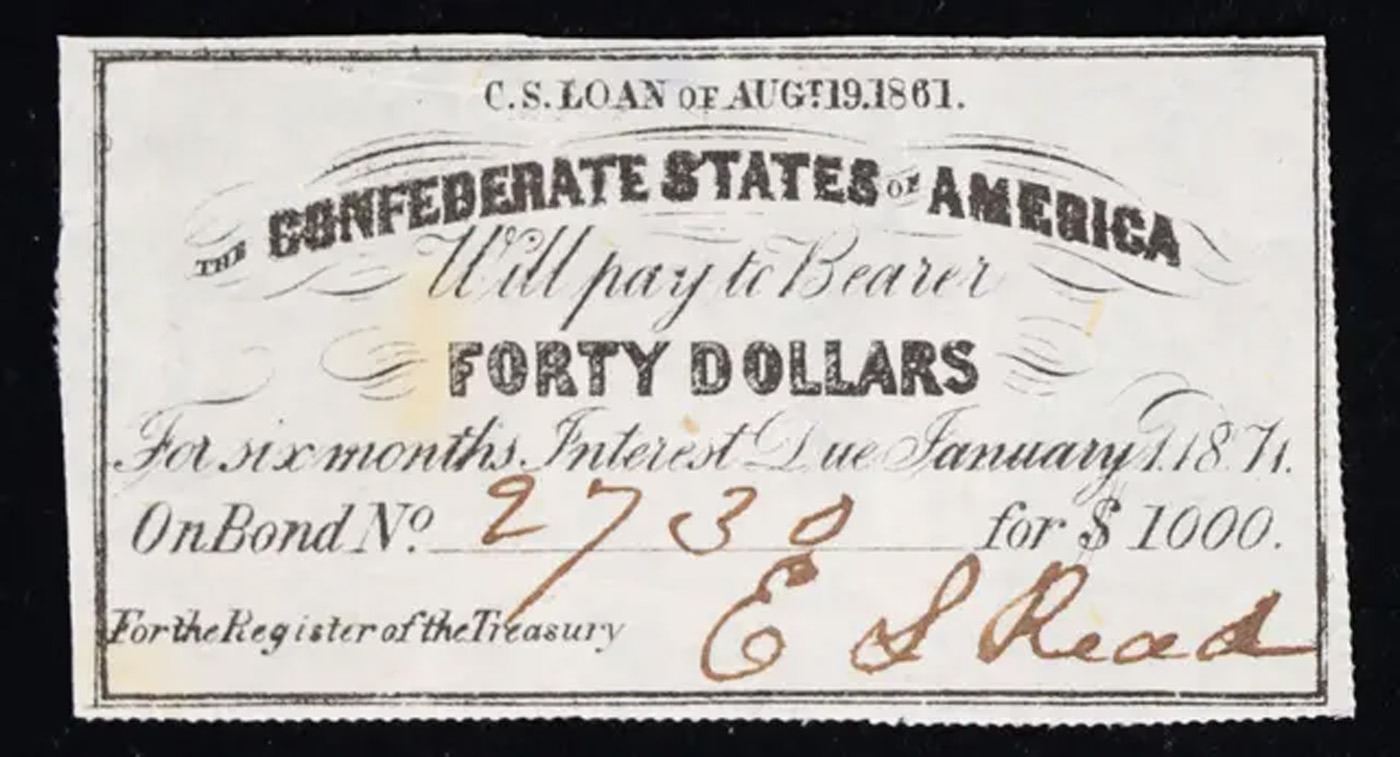 C.S. LOAN OF AUGT. 19. 1861.
THE CONFEDERATE STATES OF AMERICA
Will pay to Bearer
FORTY DOLLARS
For six months. Interest Due January 1. 1871.
On Bond No. 2730 for $ 1000.
For the Register of the Treasury E S Read